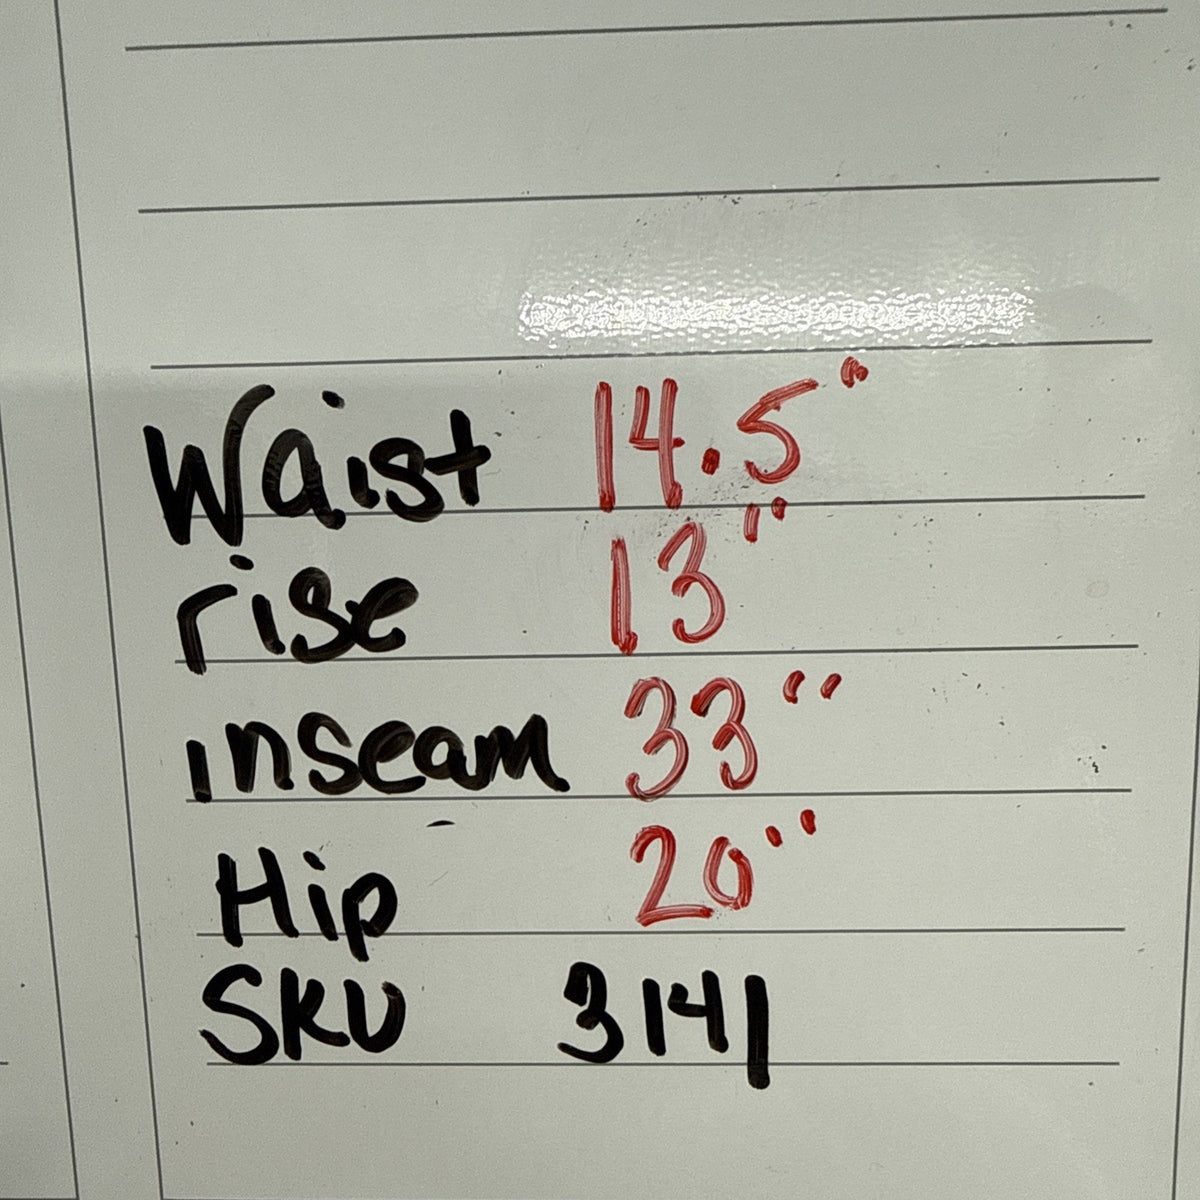 Waist 14.5"
rise 13"
inseam 33"
Hip 20"
SKU 3141